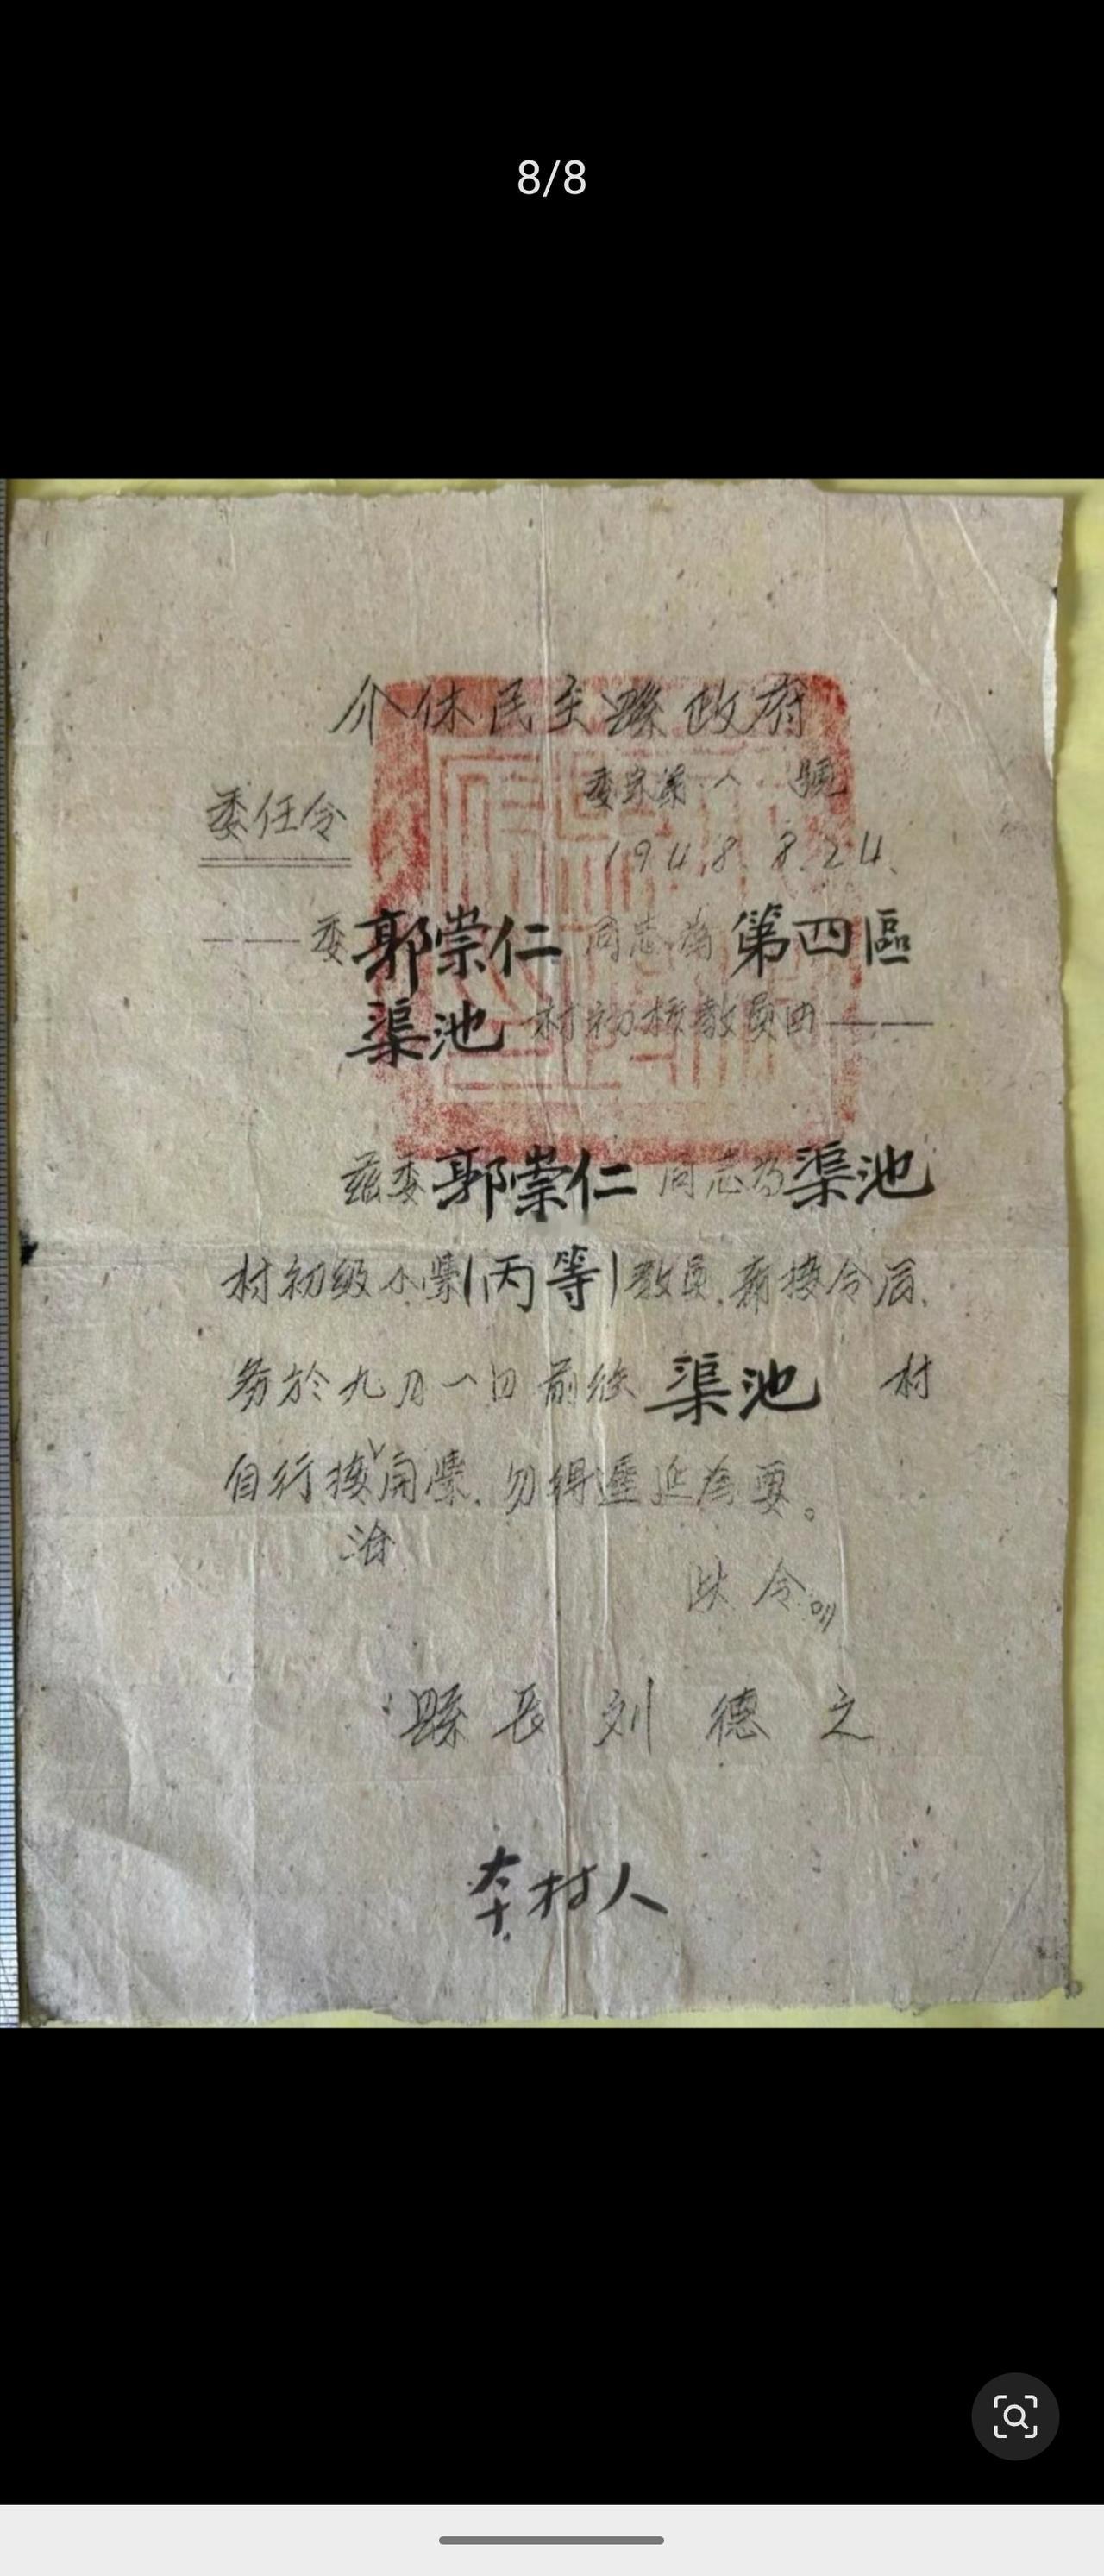 8/8
介休民主縣政府
委字第 八 號
委任令
1948.8.24.
——委郭崇仁同志為第四區
渠池村初校教員由——
茲委郭崇仁同志為渠池
村初級小學(丙等)教員,希接令后,
务於九月一日前往渠池村
自行接洽開學,勿得遲延為要。
此令。
縣長刘德之
本村人